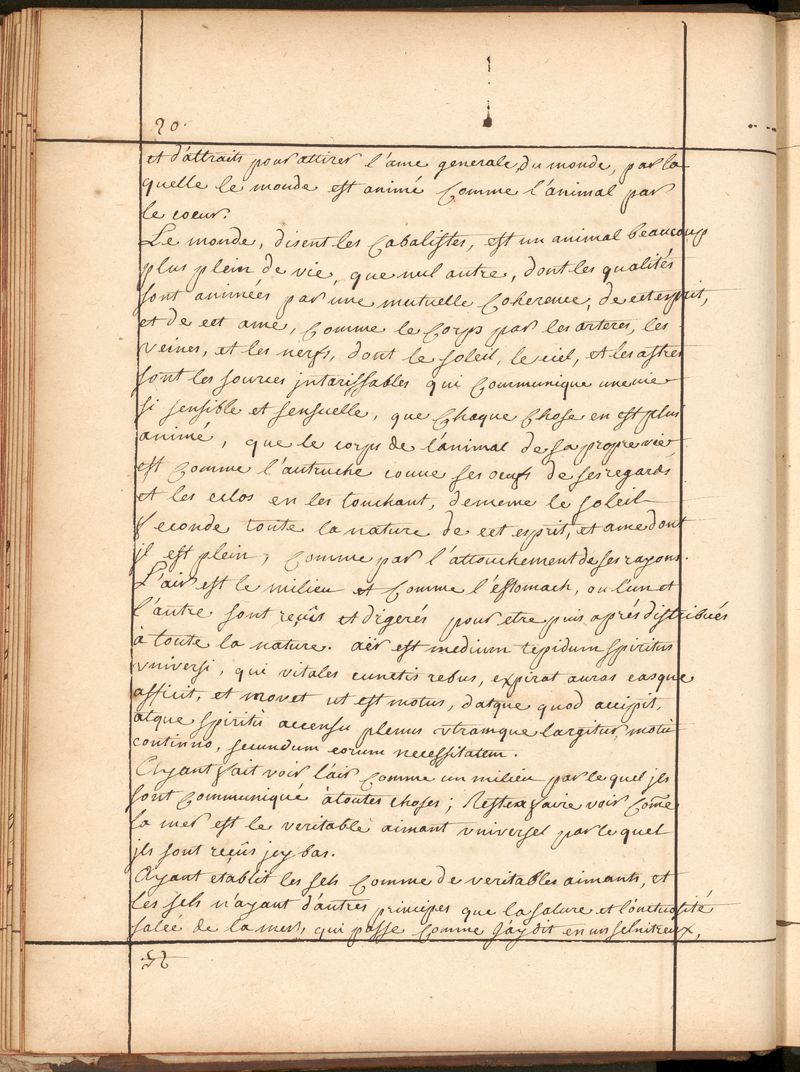 20.
et d'attraits pour attirer l'ame generale du monde, par la
quelle le monde est animé comme l'animal par
le coeur.
Le monde, disent les Cabalistes, est un animal beaucoup
plus plein de vie, que nul autre, dont les qualités
sont animées par une mutuelle Coherence, de cet esprit,
et de cet ame, comme le corps par les arteres, les
veines, et les nerfs, dont le soleil, le ciel, et les astres
sont les sources jntarissables qui communique une vie
si sensible et sensuelle, que chaque chose en est plus
animé, que le corps de l'animal de sa propre vie
est comme l'autruche couue ses oeufs de ses regards
et les eclos en les touchant, de meme le soleil
feconde toute la nature de cet esprit, et ame dont
jl est plein, comme par l'attouchement de ses rayons.
L'air est le milieu et comme l'estomach, ou l'un et
l'autre sont reçûs et digerés pour etre puis aprés distribués
à toute la nature. aër est medium tepidum spiritus
vniversi, qui vitales cunctis rebus, expirat auras easque
afficit, et movet ut est motus, datque quod accipit,
atque spiritû accensu plenus vtramque largitur, motû
continuo, secundum eorum necessitatem.
Ayant fait voir l'air comme un milieu par lequel jls
sont communiqué à toutes choses; Reste a faire voir côme
la mer est le veritable aimant vniversel par lequel
jls sont reçûs jcy bas.
Ayant etablit les sels comme de veritables aimants, et
les sels n'ayant d'autres principes que la salure et l'onctuosité
saleé de la mer, qui passe comme j'áy dit en un sel nitreux,